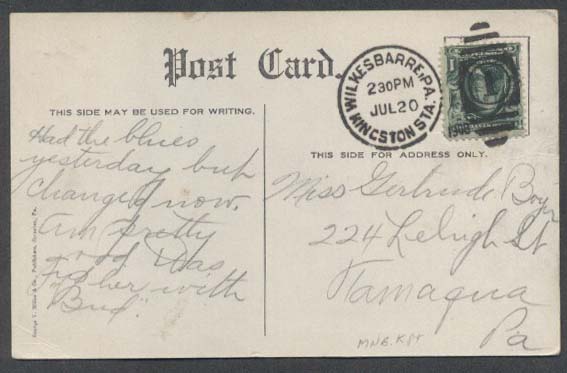 Post Card.
THIS SIDE MAY BE USED FOR WRITING.
Had the blues
yesterday but
changed now.
Am pretty
good Was
with
"Bud".
WILKESBARRE, PA.
2 30 PM
JUL 20
KINGSTON STA.
1
THIS SIDE FOR ADDRESS ONLY.
Miss Gertrude
224 Lehigh St
Tamaqua
Pa